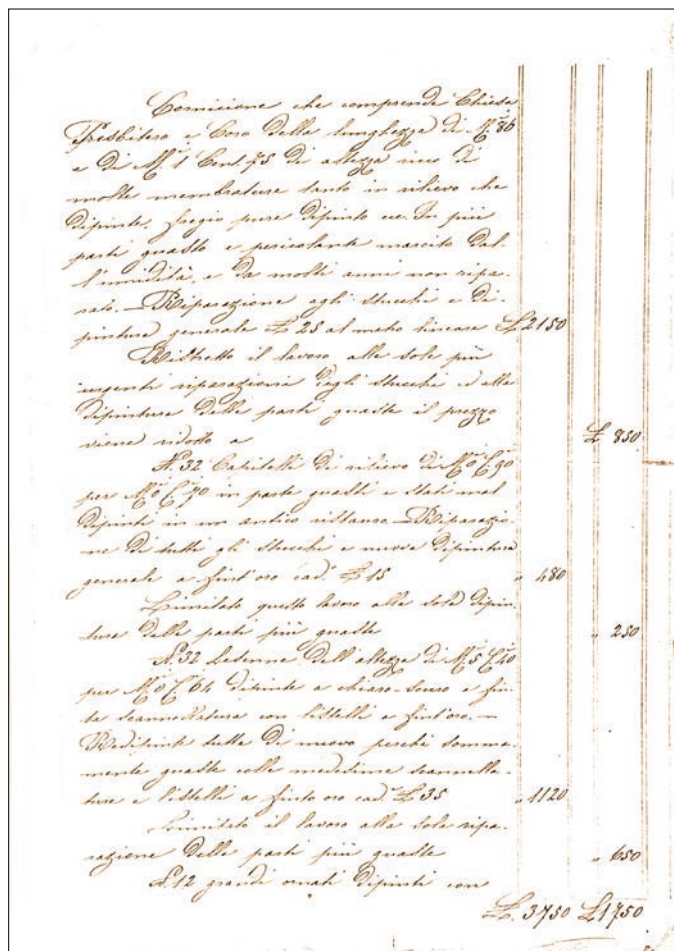 Cornicione che comprende Chiesa
Presbitero e Coro della lunghezza di M.i 86
e di M.i 1 Cent. 75 di altezza ricco di
molte membrature tanto in rilievo che
dipinte, fregio pure dipinto ecc. In più
parti guasto e pericolante marcito dal-
l'umidità, e da molti anni non ripa-
rato. — Riparazione agli stucchi e di-
pintura generale £ 25 al metro lineare £ 2150
Ristretto il lavoro alle sole più
urgenti riparazioni degli stucchi ed alla
dipintura delle parti guaste il prezzo
viene ridotto a £ 850
N. 32 Capitelli di rilievo di M.i 0 C.i 90
per M.i 0 C.i 70 in parte guasti e stati mal
dipinti in un antico ristauro. — Riparazio-
ne di tutti gli stucchi e nuova dipintura
generale a fint'oro cad.o £ 15 " 480
Limitato questo lavoro alla sola dipin-
tura delle parti più guaste " 250
N. 32 Lesenne dell'altezza di M.i 5 C.i 40
per M.i 0 C.i 64 dipinte a chiaro-scuro e fin-
ta scannellatura con listelli a fint'oro. —
Ridipinte tutte di nuovo perchè somma-
mente guaste colle medesime scannella-
ture e listelli a finto oro cad.a £ 35 " 1120
Limitato il lavoro alla sola ripa-
razione delle parti più guaste " 650
N. 12 grandi ornati dipinti con
£. 3750 £ 1750